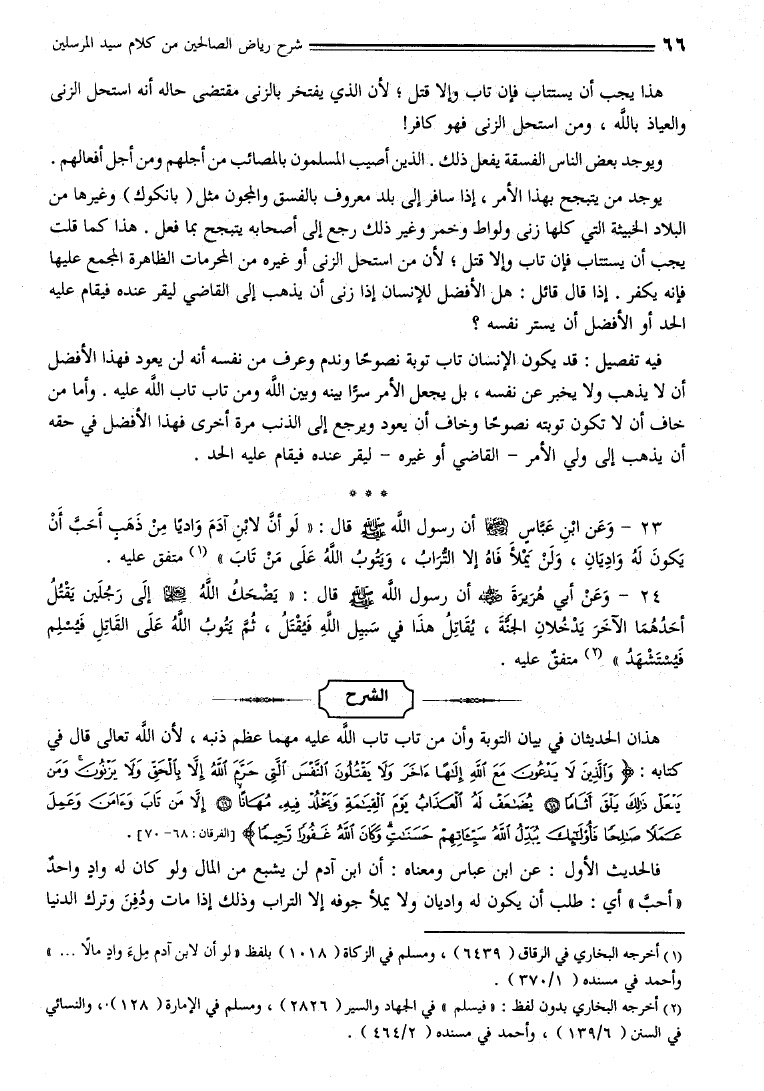 ٦٦ شرح رياض الصالحين من كلام سيد المرسلين
هذا يجب أن يستتاب فإن تاب وإلا قتل ؛ لأن الذي يفتخر بالزنى مقتضى حاله أنه استحل الزنى
والعياذ باللَّه ، ومن استحل الزنى فهو كافر!
ويوجد بعض الناس الفسقة يفعل ذلك . الذين أصيب المسلمون بالمصائب من أجلهم ومن أجل أفعالهم .
يوجد من يتبجح بهذا الأمر ، إذا سافر إلى بلد معروف بالفسق والمجون مثل ( بانكوك ) وغيرها من
البلاد الخبيثة التي كلها زنى ولواط وخمر وغير ذلك رجع إلى أصحابه يتبجح بما فعل . هذا كما قلت
يجب أن يستتاب فإن تاب وإلا قتل ؛ لأن من استحل الزنى أو غيره من المحرمات الظاهرة المجمع عليها
فإنه يكفر . إذا قال قائل : هل الأفضل للإنسان إذا زنى أن يذهب إلى القاضي ليقر عنده فيقام عليه
الحد أو الأفضل أن يستر نفسه ؟
فيه تفصيل : قد يكون الإنسان تاب توبة نصوحًا وندم وعرف من نفسه أنه لن يعود فهذا الأفضل
أن لا يذهب ولا يخبر عن نفسه ، بل يجعل الأمر سرًّا بينه وبين اللَّه ومن تاب تاب اللَّه عليه . وأما من
خاف أن لا تكون توبته نصوحًا وخاف أن يعود ويرجع إلى الذنب مرة أخرى فهذا الأفضل في حقه
أن يذهب إلى ولي الأمر – القاضي أو غيره – ليقر عنده فيقام عليه الحد .
* * *
٢٣ – وَعَن ابْنِ عَبَّاسٍ ﵄ أن رسول اللَّه ﷺ قال : « لَو أنَّ لابْنِ آدَمَ وَاديًا مِنْ ذَهَبٍ أَحَبَّ أَنْ
يَكونَ لَهُ وَادِيَانِ ، وَلَنْ يَمْلأَ فَاهُ إلا التُّرَابُ ، وَيَتُوبُ اللَّهُ عَلَى مَنْ تَابَ » (١) متفق عليه .
٢٤ – وَعَنْ أبي هُرَيرَةَ ﵁ أن رسول اللَّه ﷺ قال : « يَضْحَكُ اللَّهُ ﷻ إلَى رَجُلَين يَقْتُلُ
أحَدُهُمَا الآخَرَ يَدْخُلانِ الجنَّةَ ، يُقَاتِلُ هذَا في سَبيل اللَّهِ فَيُقْتَلُ ، ثُمَّ يَتُوبُ اللَّهُ عَلَى القَاتِلِ فَيُسْلِم
فَيُسْتَشْهَدُ » (٢) متفقٌ عليه .
الشرح
هذان الحديثان في بيان التوبة وأن من تاب تاب اللَّه عليه مهما عظم ذنبه ، لأن اللَّه تعالى قال في
كتابه : ﴿ وَٱلَّذِينَ لَا يَدْعُونَ مَعَ ٱللَّهِ إِلَٰهًا ءَاخَرَ وَلَا يَقْتُلُونَ ٱلنَّفْسَ ٱلَّتِى حَرَّمَ ٱللَّهُ إِلَّا بِٱلْحَقِّ وَلَا يَزْنُونَ ۚ وَمَن
يَفْعَلْ ذَٰلِكَ يَلْقَ أَثَامًا ۝٦٨ يُضَٰعَفْ لَهُ ٱلْعَذَابُ يَوْمَ ٱلْقِيَٰمَةِ وَيَخْلُدْ فِيهِۦ مُهَانًا ۝٦٩ إِلَّا مَن تَابَ وَءَامَنَ وَعَمِلَ
عَمَلًا صَٰلِحًا فَأُو۟لَٰٓئِكَ يُبَدِّلُ ٱللَّهُ سَيِّـَٔاتِهِمْ حَسَنَٰتٍ ۗ وَكَانَ ٱللَّهُ غَفُورًا رَّحِيمًا ﴾ [الفرقان : ٦٨– ٧٠] .
فالحديث الأول : عن ابن عباس ومعناه : أن ابن آدم لن يشبع من المال ولو كان له وادٍ واحدٌ
« أحبَّ » أي : طلب أن يكون له واديان ولا يملأ جوفه إلا التراب وذلك إذا مات ودُفِنَ وترك الدنيا
(١) أخرجه البخاري في الرقاق ( ٦٤٣٩ ) ، ومسلم في الزكاة ( ١٠١٨ ) بلفظ « لو أن لابن آدم مِلءَ وادٍ مالًا ... »
وأحمد في مسنده ( ٣٧٠/١ ) .
(٢) أخرجه البخاري بدون لفظ : « فيسلم » في الجهاد والسير ( ٢٨٢٦ ) ، ومسلم في الإمارة ( ١٢٨ ) ، والنسائي
في السنن ( ١٣٩/٦ ) ، وأحمد في مسنده ( ٤٦٤/٢ ) .